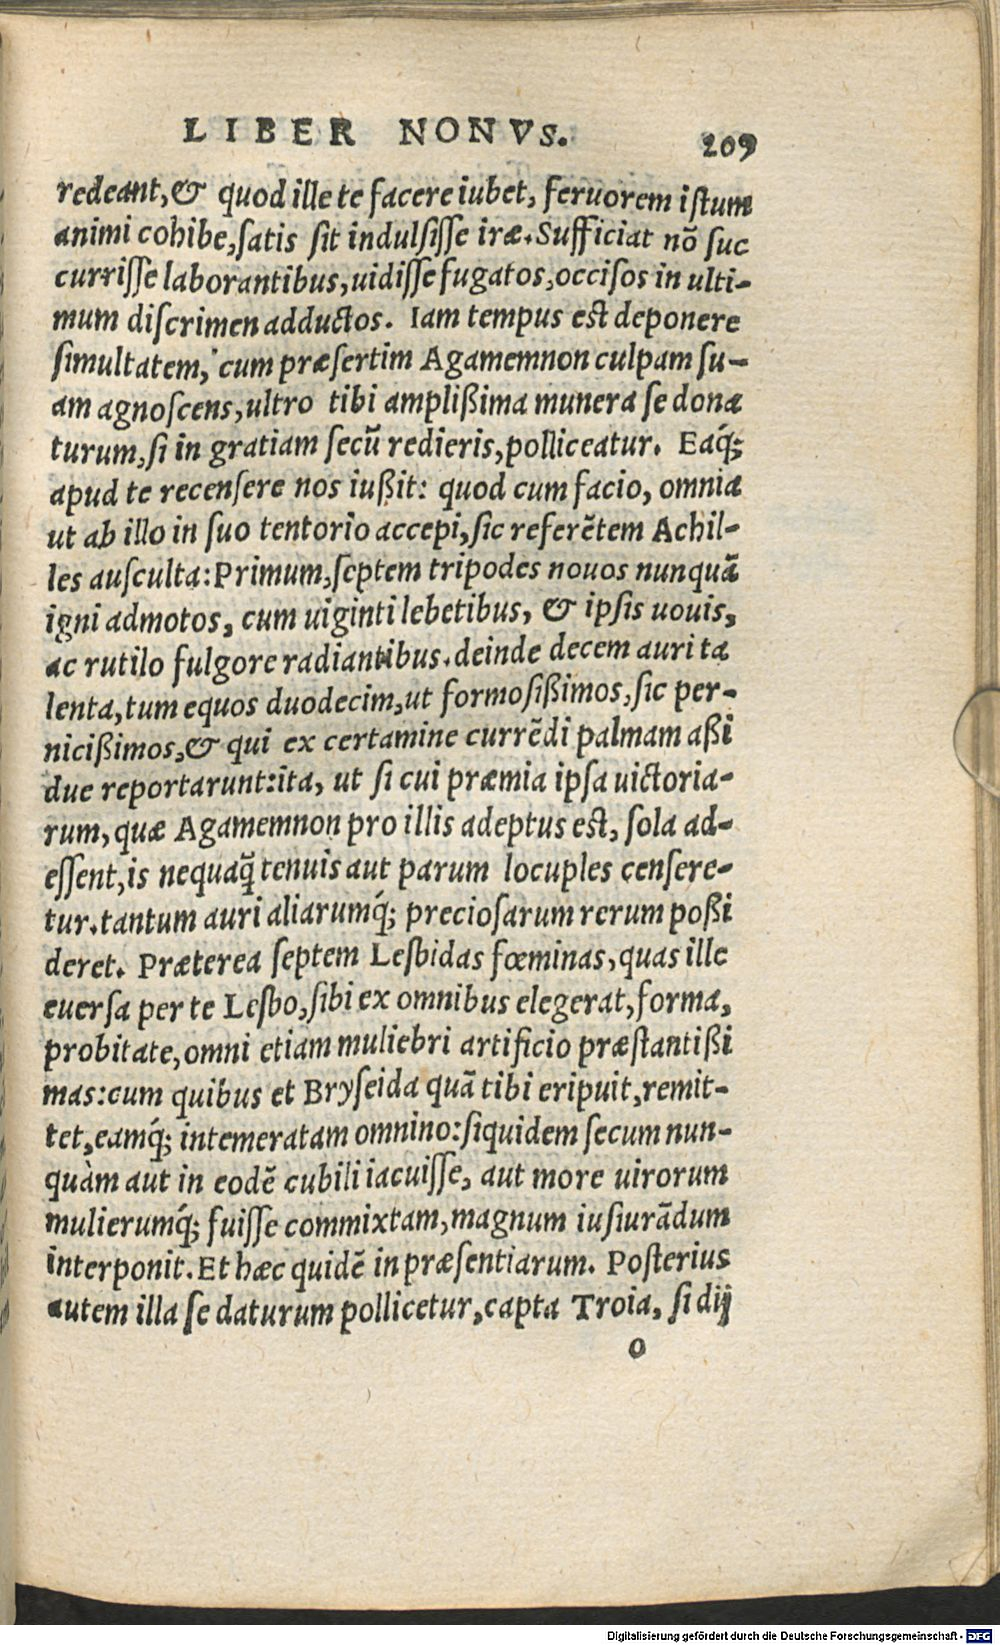 LIBER NONVS. 209
redeant, & quod ille te facere iubet, feruorem istum
animi cohibe, satis sit indulsisse iræ. Sufficiat nō suc
currisse laborantibus, uidisse fugatos, occisos in ulti-
mum discrimen adductos. Iam tempus est deponere
simultatem, cum præsertim Agamemnon culpam su-
am agnoscens, ultro tibi amplißima munera se dona
turum, si in gratiam secū redieris, polliceatur. Eaq́;
apud te recensere nos iußit: quod cum facio, omnia
ut ab illo in suo tentorio accepi, sic referētem Achil-
les ausculta: Primum, septem tripodes nouos nunquā
igni admotos, cum uiginti lebetibus, & ipsis uouis,
ac rutilo fulgore radiantibus. deinde decem auri ta
lenta, tum equos duodecim, ut formosißimos, sic per-
nicißimos, & qui ex certamine currēdi palmam aßi
due reportarunt: ita, ut si cui præmia ipsa uictoria-
rum, quæ Agamemnon pro illis adeptus est, sola ad-
essent, is nequaq̃ tenuis aut parum locuples censere-
tur. tantum auri aliarumq́; preciosarum rerum poßi
deret. Præterea septem Lesbidas fœminas, quas ille
euersa per te Lesbo, sibi ex omnibus elegerat, forma,
probitate, omni etiam muliebri artificio præstantißi
mas: cum quibus et Bryseida quā tibi eripuit, remit-
tet, eamq́; intemeratam omnino: siquidem secum nun-
quàm aut in eodē cubili iacuisse, aut more uirorum
mulierumq́; fuisse commixtam, magnum iusiurādum
interponit. Et hæc quidē in præsentiarum. Posterius
autem illa se daturum pollicetur, capta Troia, si dij
o
Digitalisierung gefördert durch die Deutsche Forschungsgemeinschaft - DFG